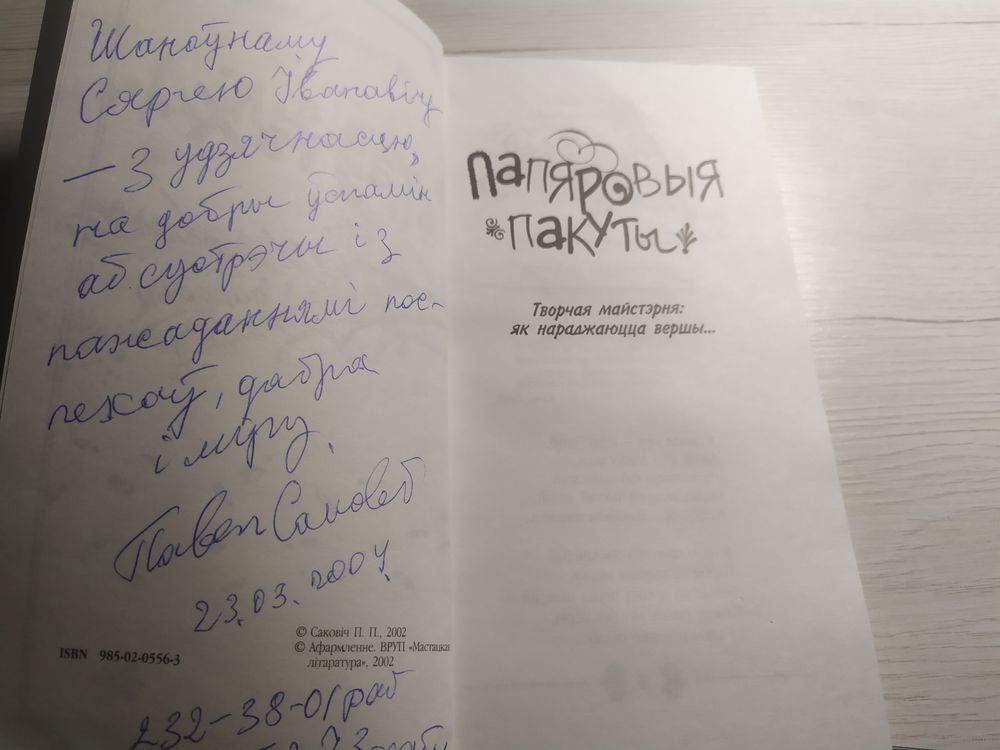 Шаноўнаму
Сяргею Іванавічу
— З удзячнасцю,
на добры ўспамін
аб сустрэчы і з
пажаданнямі пос-
пехаў, дабра
і міру.
Павел
23.03.2004
© Саковіч П. П., 2002
© Афармленне. ВРУП «Мастацкая
літаратура», 2002
ISBN 985-02-0556-3
232-38-01 раб
Папяровыя
пакуты
Творчая майстэрня:
як нараджаюцца вершы...